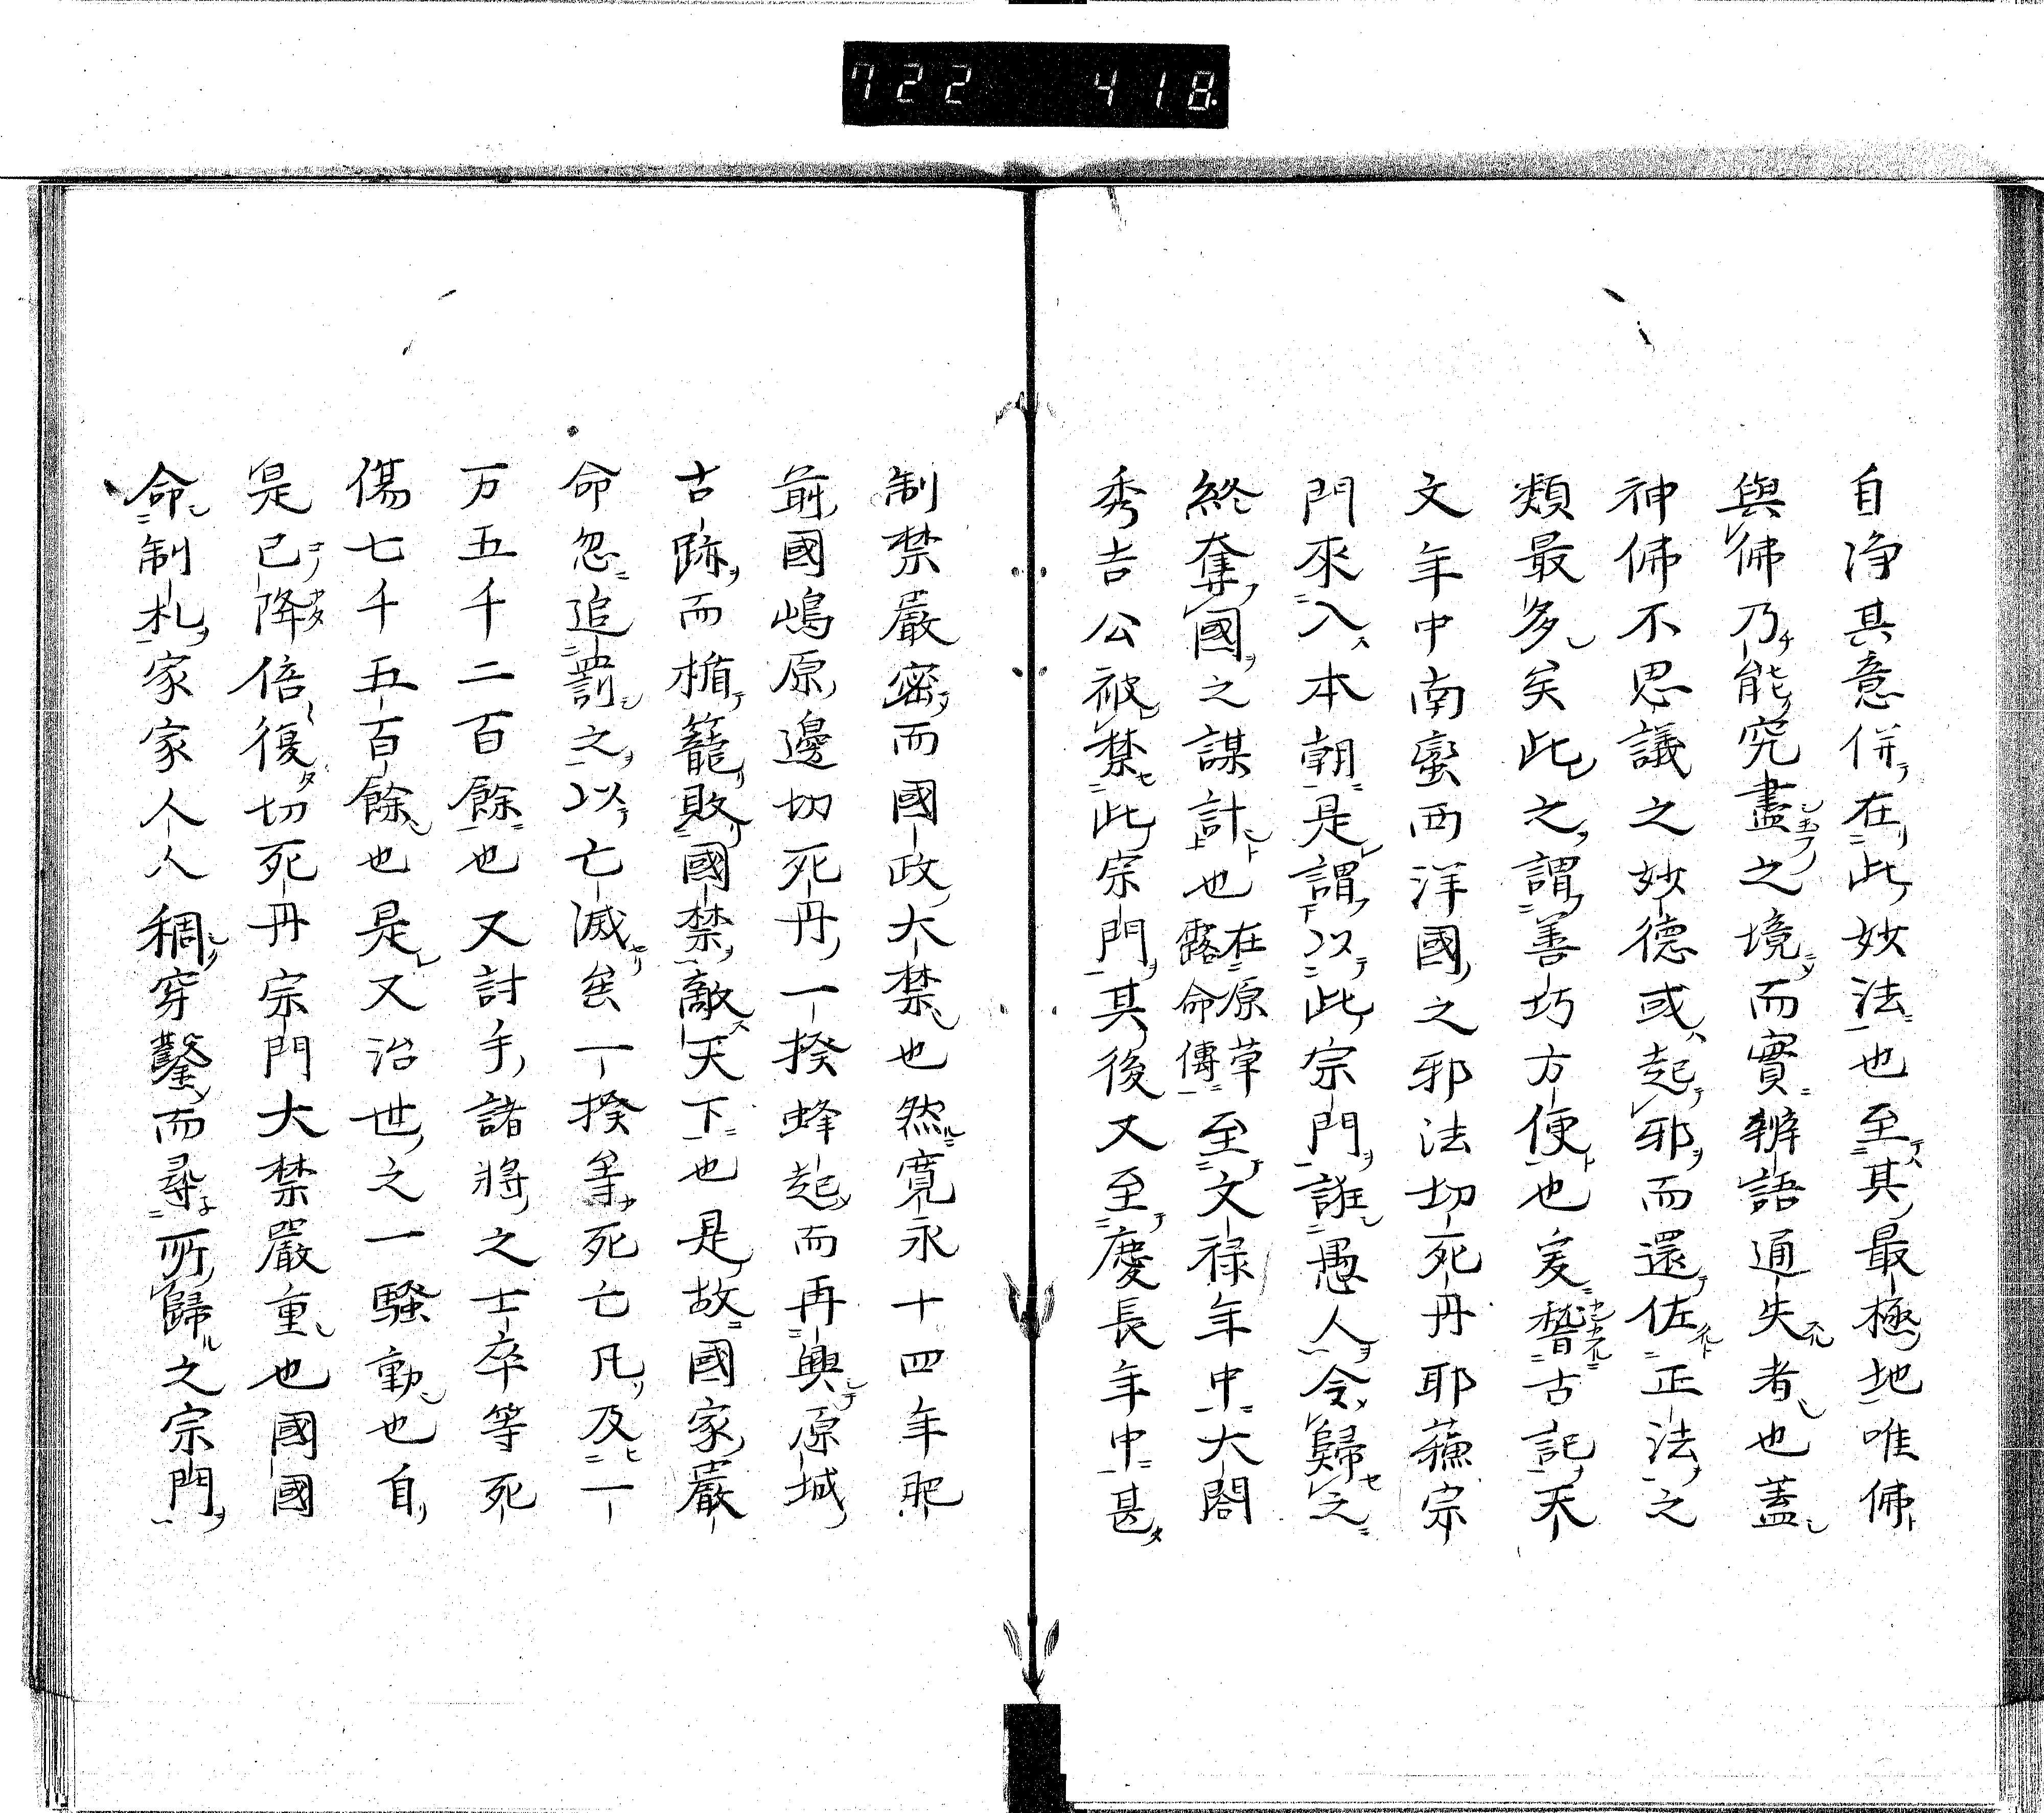 722 418
自浄其意併在此妙法也至其最極地唯佛
與佛乃能究盡之境而實辨語通失者也蓋
神佛不思議之妙德或起邪而還佐正法之
類最多矣此之謂善巧方便也爰稽古記天
文年中南蛮西洋國之邪法切死丹耶蘓宗
門來入本朝是謂以此宗門誑愚人令歸之
終奪國之謀計也在原草露命傳至文禄年中大閤
秀吉公被禁此宗門其後又至慶長年中甚
制禁嚴密而國政大禁也然寛永十四年肥
前國嶋原邊切死丹一揆蜂起而再興原城
古跡而楯籠敗國禁敵天下也是故國家嚴
命忽追罰之以亡滅矣一揆等死亡凡及一
万五千二百餘也又討手諸將之士卒等死
傷七千五百餘也是又治世之一騒動也自
是已降倍復切死丹宗門大禁嚴重也國國
命制札家家人人稠穿鑿而尋所歸之宗門